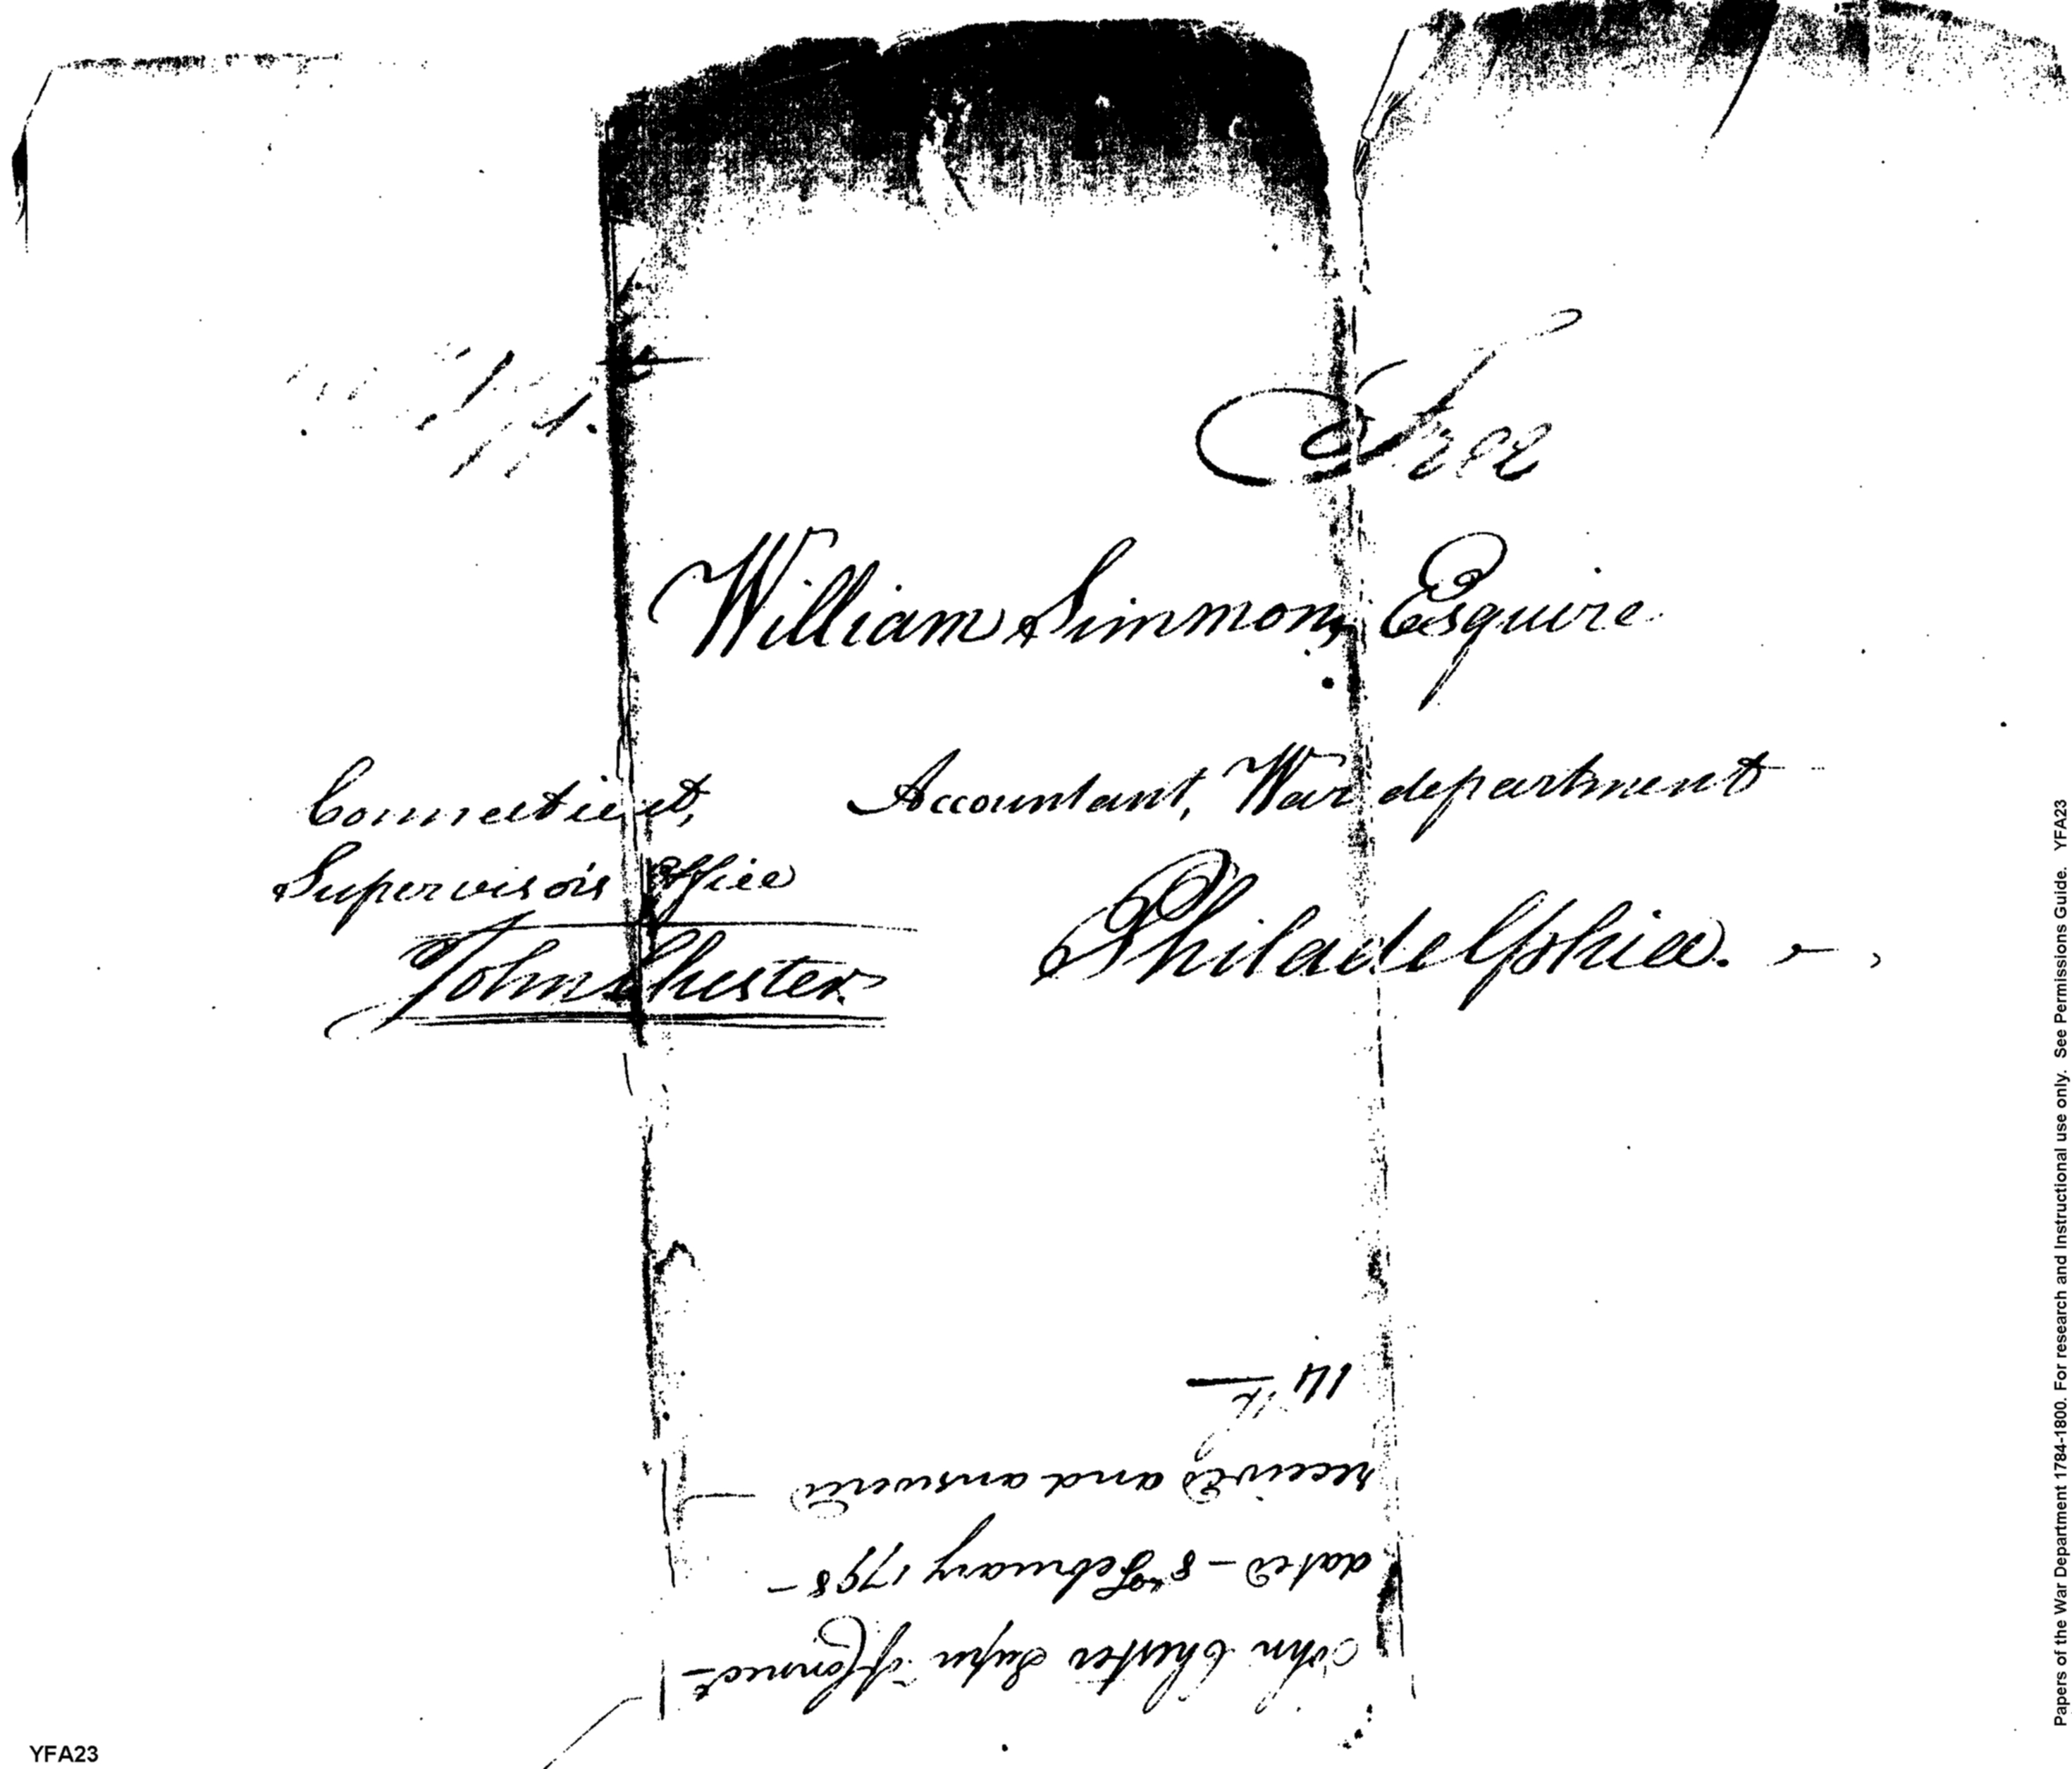 Free
William Simmons Esquire
Accountant, War department
Philadelphia.
Connecticut,
Supervisor's Office
John Chester
John Chester Supr of Connect
dated - 8th February 1798 -
received and answered
14th
YFA23
Papers of the War Department 1784-1800. For research and instructional use only. See Permissions Guide. YFA23